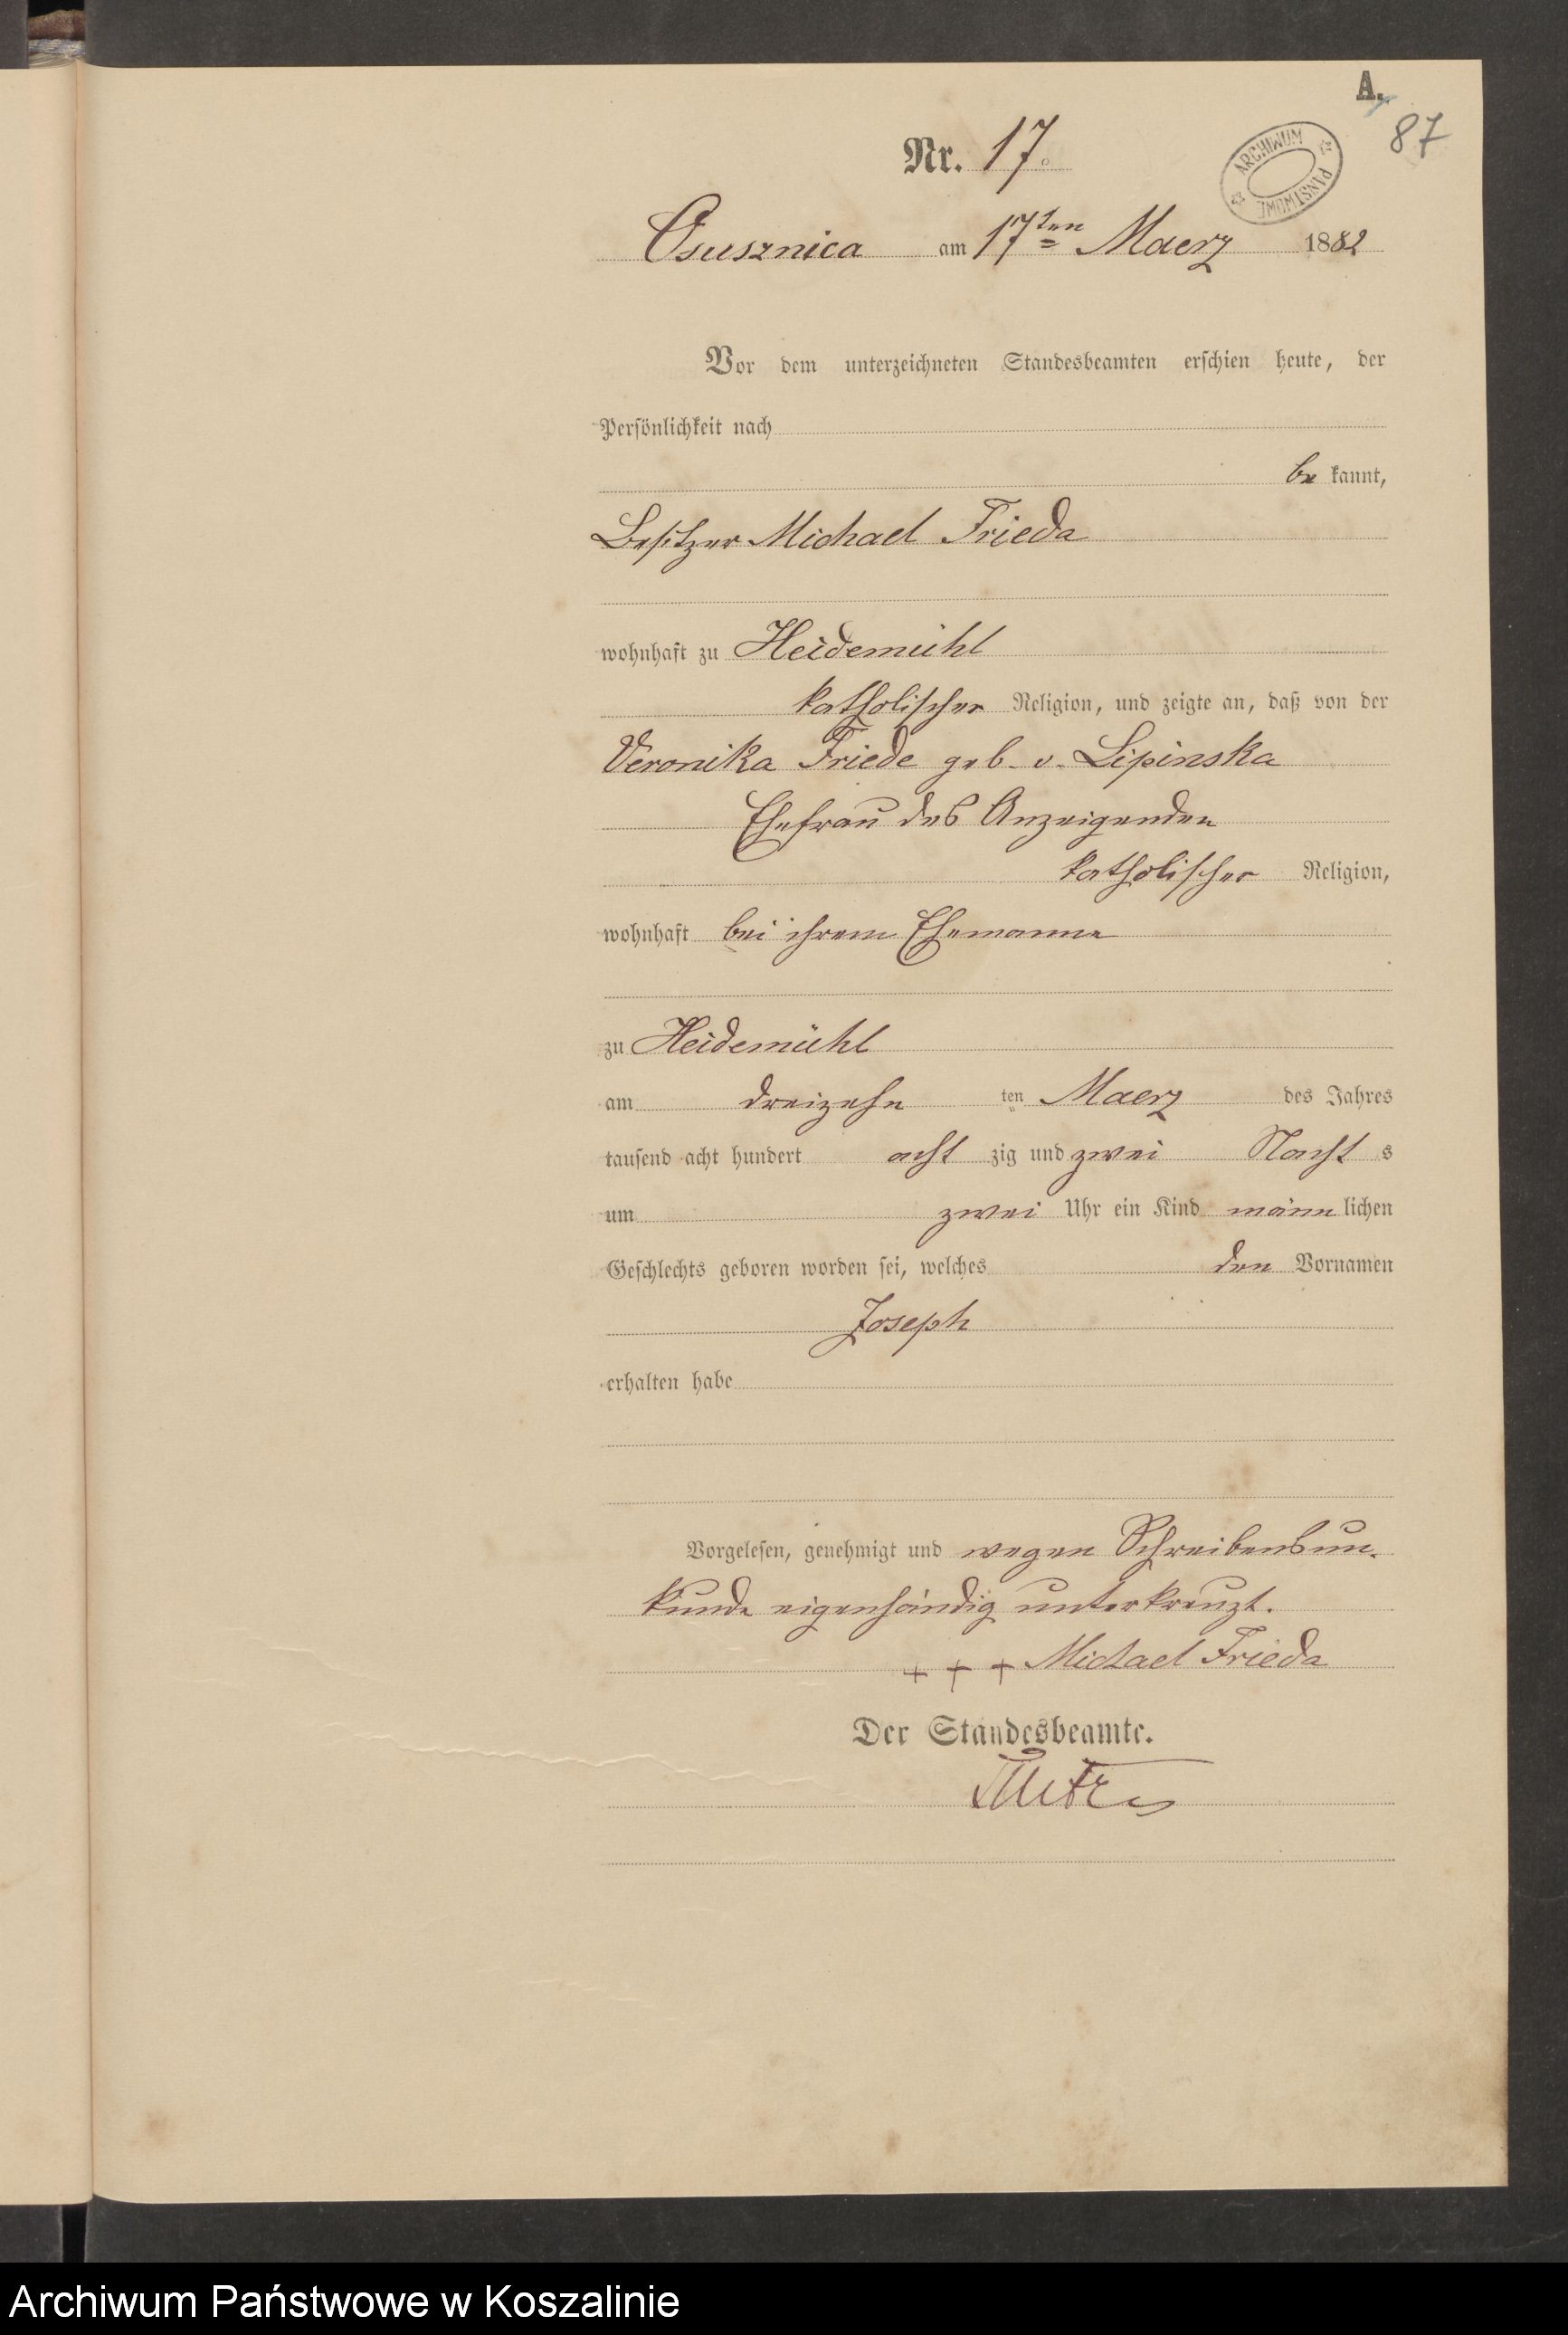 A.
87
ARCHIWUM PAŃSTWOWE
Nr. 17.
Osusznica am 17ten Maerz 1882
Vor dem unterzeichneten Standesbeamten erschien heute, der
Persönlichkeit nach
be kannt,
Besitzer Michael Frieda
wohnhaft zu Heidemühl
katholischer Religion, und zeigte an, daß von der
Veronika Friede geb. v. Lipinska
Ehefrau des Anzeigenden
katholischer Religion,
wohnhaft bei ihrem Ehemanne
zu Heidemühl
am dreizehn ten Maerz des Jahres
tausend acht hundert acht zig und zwei Nacht s
um zwei Uhr ein Kind männ lichen
Geschlechts geboren worden sei, welches den Vornamen
Joseph
erhalten habe
Vorgelesen, genehmigt und wegen Schreibensun-
kunde eigenhändig unterkreuzt.
+ + + Michael Frieda
Der Standesbeamte.
Archiwum Państwowe w Koszalinie